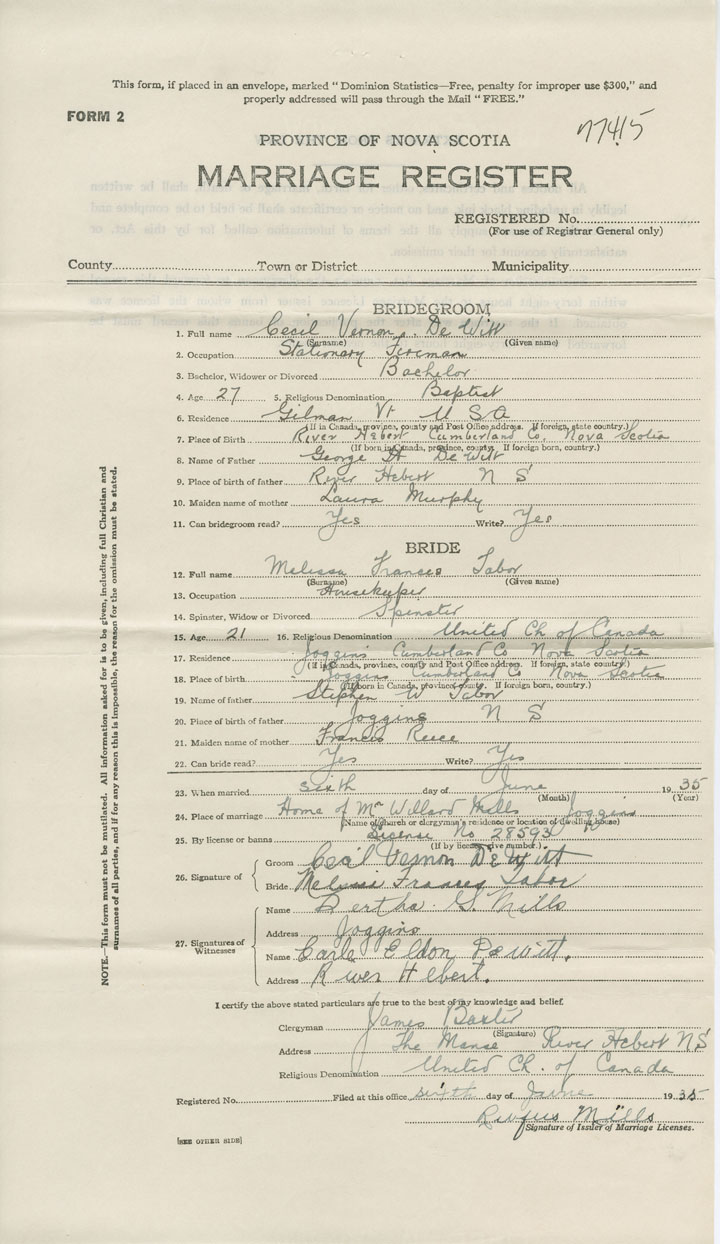 This form, if placed in an envelope, marked "Dominion Statistics—Free, penalty for improper use $300," and
properly addressed will pass through the Mail "FREE."
FORM 2
77415
PROVINCE OF NOVA SCOTIA
MARRIAGE REGISTER
REGISTERED No.
(For use of Registrar General only)
County Town or District Municipality
BRIDEGROOM
1. Full name Cecil Vernon De Witt
(Surname) (Given name)
2. Occupation Stationary Fireman
3. Bachelor, Widower or Divorced Bachelor
4. Age 27 5. Religious Denomination Baptist
6. Residence Gilman Vt U S A
(If in Canada, province, county and Post Office address. If foreign, state country.)
7. Place of Birth River Hebert Cumberland Co. Nova Scotia
(If born in Canada, province, county. If foreign born, country.)
8. Name of Father George De Witt
9. Place of birth of father River Hebert N S
10. Maiden name of mother Laura Murphy
11. Can bridegroom read? Yes Write? Yes
BRIDE
12. Full name Melissa Frances Tabor
(Surname) (Given name)
13. Occupation Housekeeper
14. Spinster, Widow or Divorced Spinster
15. Age 21 16. Religious Denomination United Ch of Canada
17. Residence Joggins Cumberland Co Nova Scotia
(If in Canada, provinces, county and Post Office address. If foreign, state country)
18. Place of birth Joggins Cumberland Co Nova Scotia
(If born in Canada, province, county. If foreign born, country.)
19. Name of father Stephen W Tabor
20. Place of birth of father Joggins N S
21. Maiden name of mother Francis Reece
22. Can bride read? Yes Write? Yes
23. When married sixth day of June 1935
(Month) (Year)
24. Place of marriage Home of Mr Willard Mills Joggins
(Name of church or clergyman's residence or location of dwelling house)
25. By license or banns License No 28593
(If by license give number.)
26. Signature of
Groom Cecil Vernon DeWitt
Bride Melissa Frances Tabor
27. Signatures of Witnesses
Name Bertha G. Mills
Address Joggins
Name Carle Eldon Dewitt.
Address River Hebert.
I certify the above stated particulars are true to the best of my knowledge and belief.
Clergyman James Baxter
(Signature)
Address The Manse River Hebert NS
Religious Denomination United Ch. of Canada
Registered No. Filed at this office sixth day of June 1935
Rufus Mills
Signature of Issuer of Marriage Licenses.
[SEE OTHER SIDE]
NOTE.—This form must not be mutilated. All information asked for is to be given, including full Christian and
surnames of all parties, and if for any reason this is impossible, the reason for the omission must be stated.